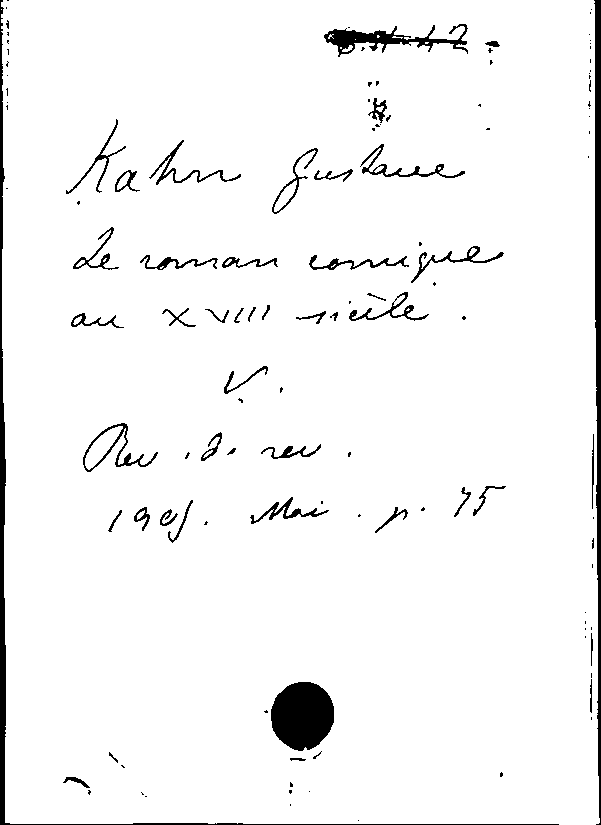 Kahn Gustave
Le roman comique
au XVIII siècle.
V.
Rev. d. rev.
1905. Mai. p. 75